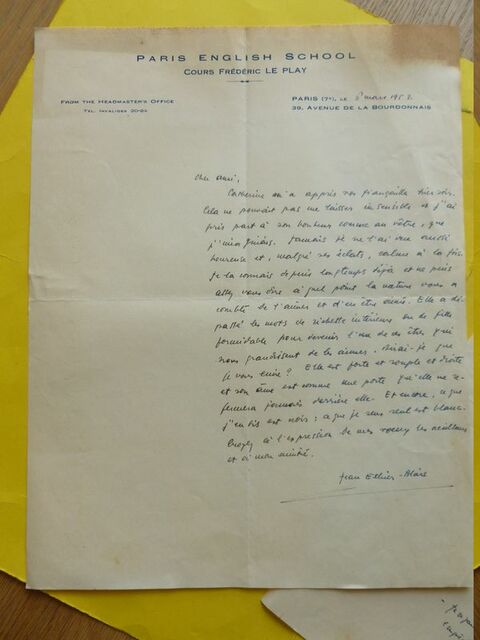 PARIS ENGLISH SCHOOL
COURS FRÉDÉRIC LE PLAY
FROM THE HEADMASTER'S OFFICE
TEL. INVALIDES 20-24
PARIS (7e), LE 8 mars 195
39, AVENUE DE LA BOURDONNAIS
Cher ami,
Catherine m'a appris vos fiançailles hier soir.
Cela ne pouvait pas me laisser insensible et j'ai
pris part à son bonheur comme au vôtre, que
j'imagine. Jamais je ne l'ai vue aussi
heureuse et, malgré ses éclats, calme à la fois.
Je la connais depuis longtemps déjà et ne puis
assez vous dire à quel point la nature vous a
comblé de l'aimer et d'en être aimé. Elle a dé-
passé les mots de richesse intérieure ou de fille
formidable pour devenir l'un de ces êtres qui
nous grandissent de les aimer. Dirai-je que
je vous envie? Elle est forte et souple et droite
et son âme est comme une porte qu'elle ne re-
fermera jamais derrière elle. Et encore, ce que
j'en dis est noir; ce que je sens seul est blanc.
Croyez à l'expression de mes vœux les meilleurs
et à mon amitié.
Jean